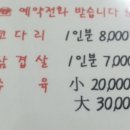 ☎ 예약전화 받습니다
코다리 1인분 8,000
삼겹살 1인분 7,000
수육 小 20,000
大 30,000